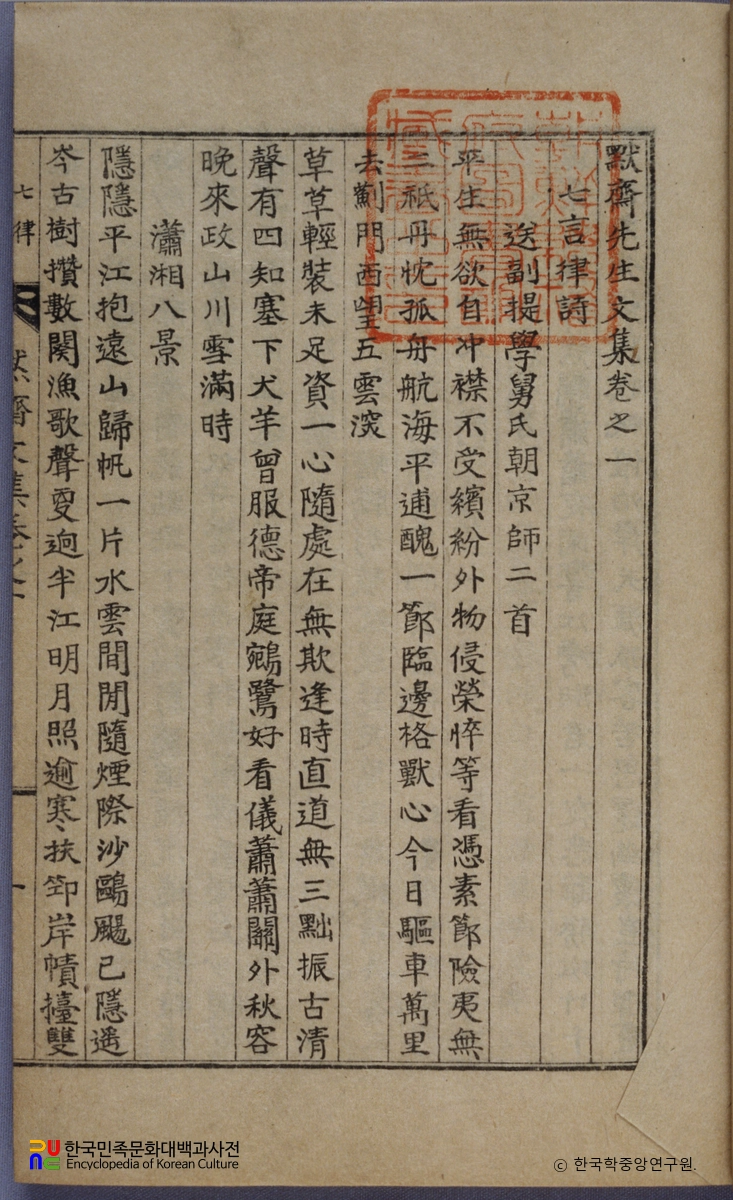 默齋先生文集卷之一
七言律詩
送副提學舅氏朝京師二首
平生無欲自冲襟不受繽紛外物侵榮悴等看憑素節險夷無
二祇丹忱孤舟航海平逋醜一節臨邊格獸心今日驅車萬里
去薊門西望五雲深
草草輕裝未足資一心隨處在無欺逢時直道無三黜振古清
聲有四知塞下犬羊曾服德帝庭鵷鷺好看儀蕭蕭關外秋容
晩來政山川雪滿時
瀟湘八景
隱隱平江抱遠山歸帆一片水雲間閒隨煙際沙鷗颺已隱遥
岑古樹攢數関漁歌聲夐逈半江明月照逾寒扶筇岸幘擡雙
七律
默齋文集卷之一
一
한국민족문화대백과사전
Encyclopedia of Korean Culture
ⓒ 한국학중앙연구원.